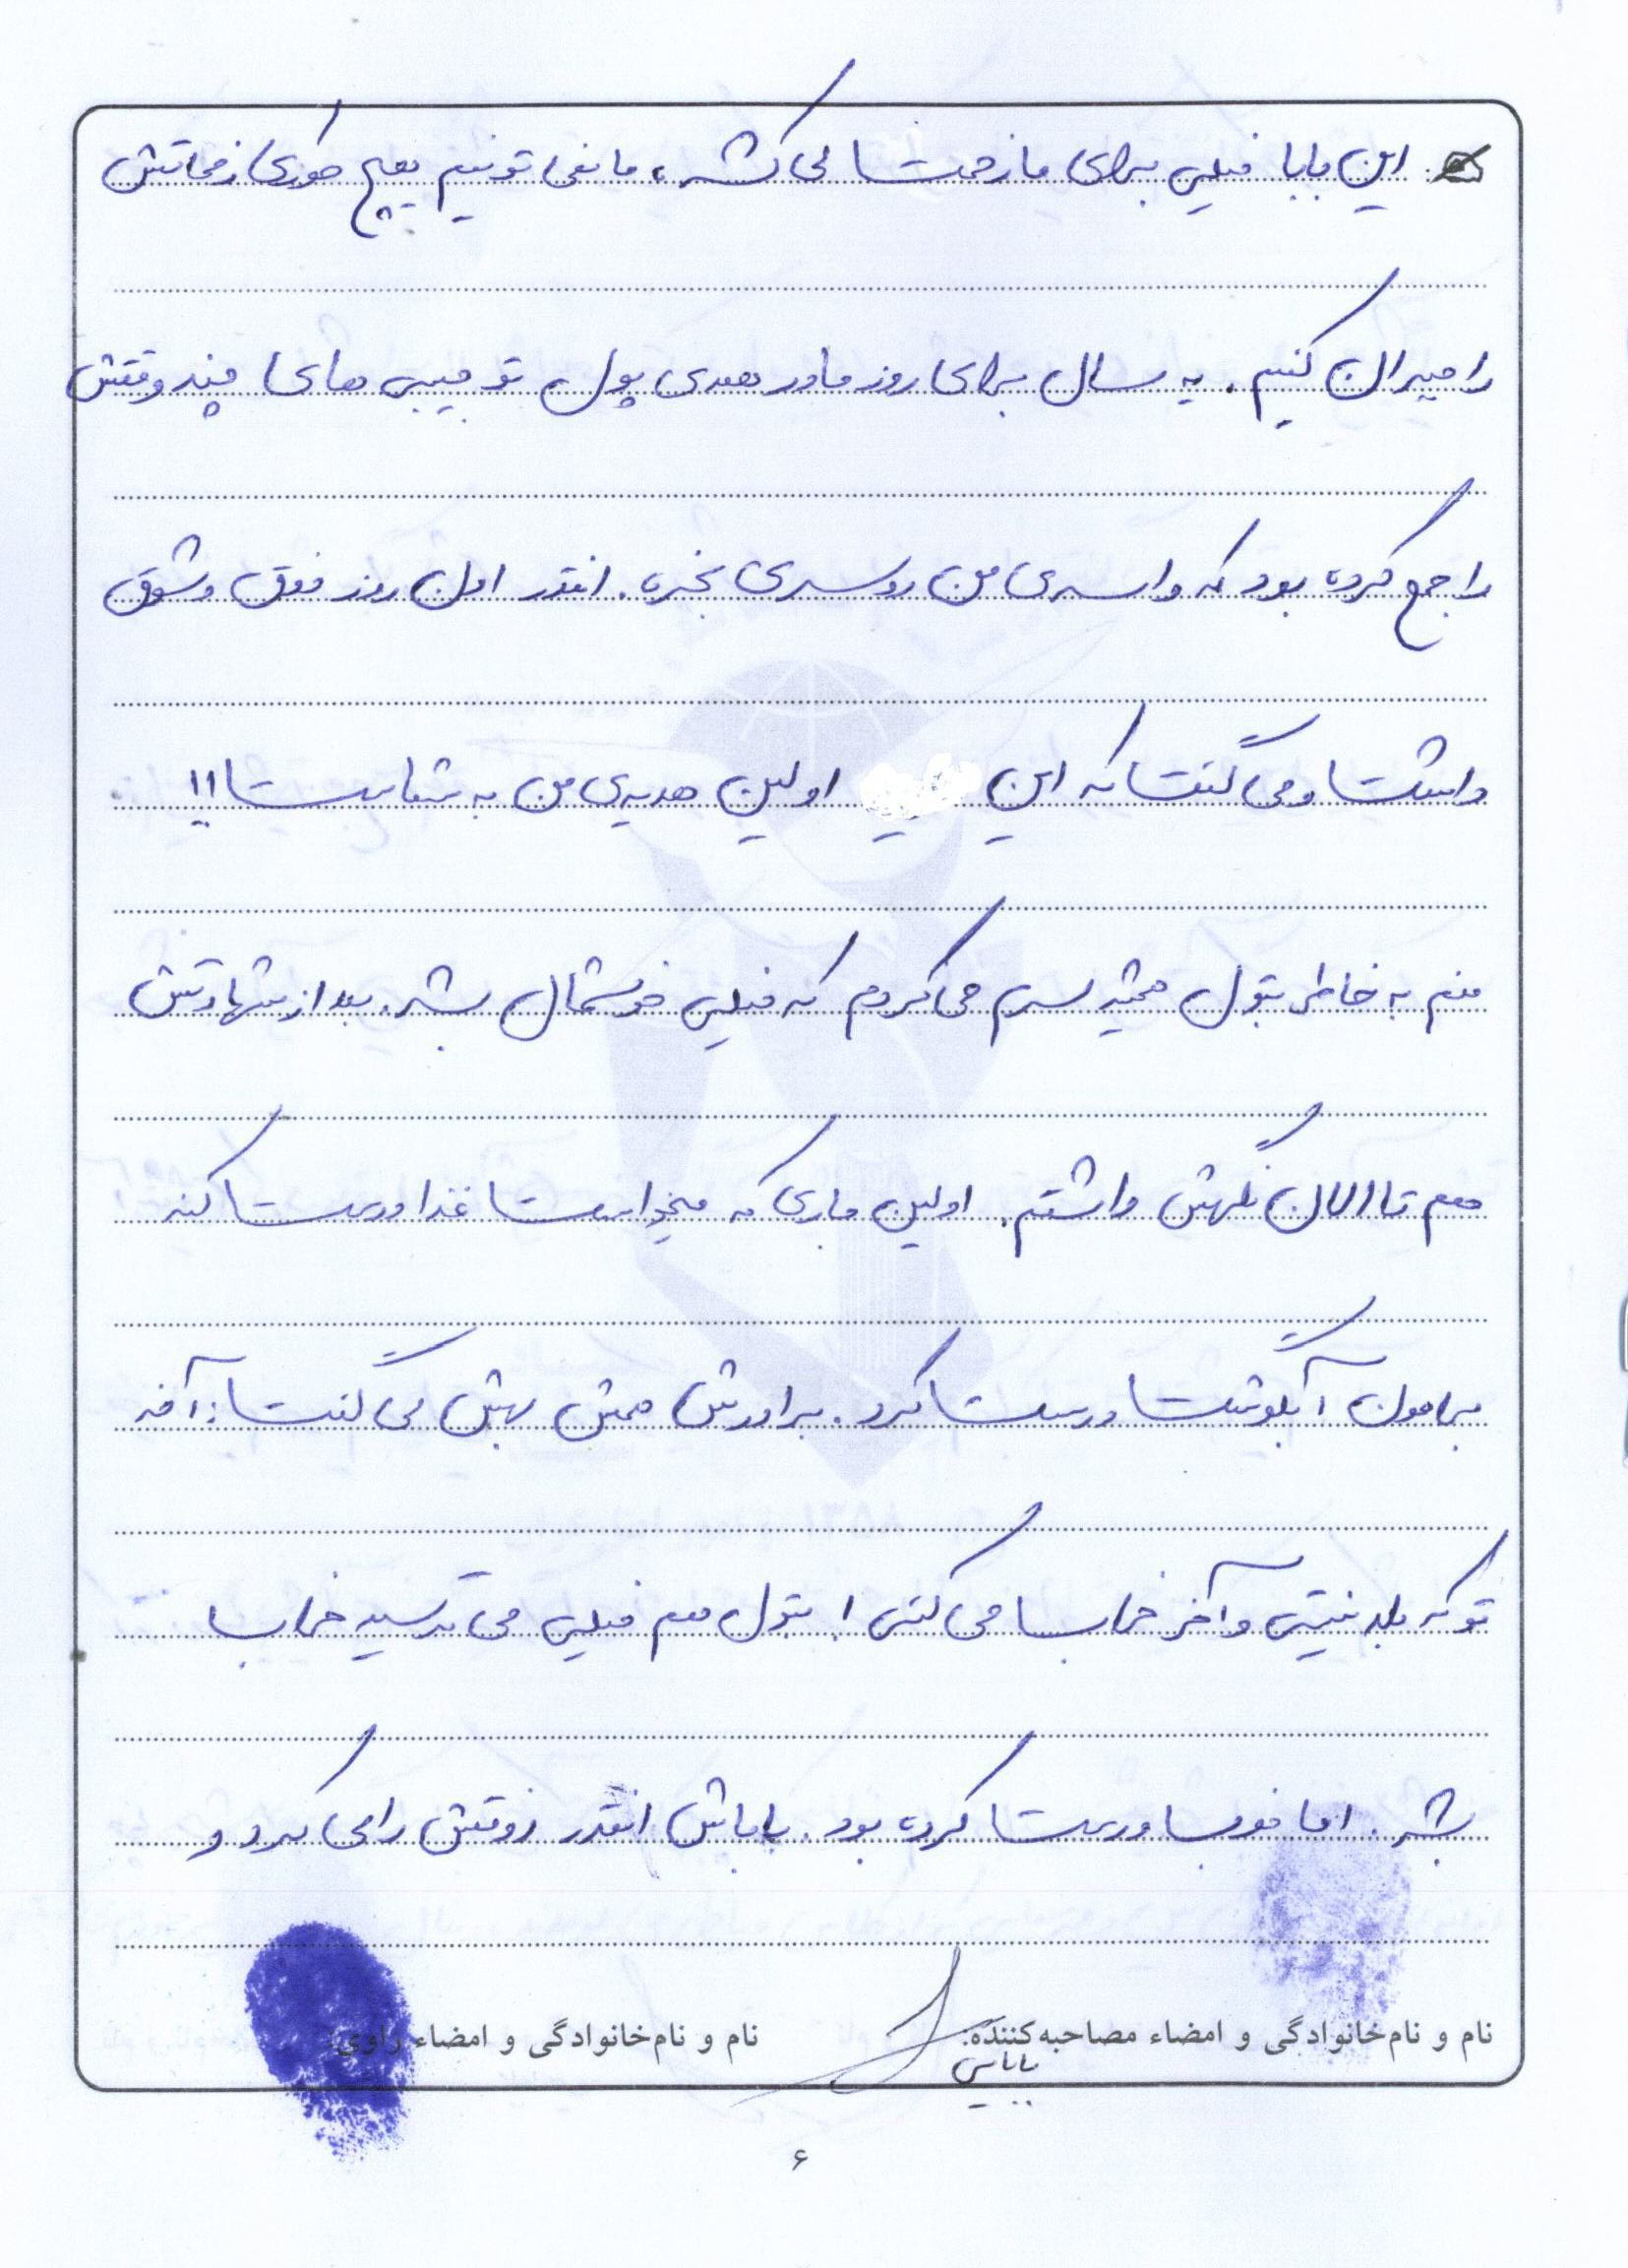 این بابا خیلی برای ما زحمت می کشه، ما نمی تونیم هیچ طوری زحماتش
را جبران کنیم. یه سال برای روز مادر همه‌ی پول تو جیبی های چند وقتش
را جمع کرده بود که واسه‌ی من روسری بخره. انقدر اون روز ذوق و شوق
داشت و می گفت که این اولین هدیه‌ی من به شماست!!
منم به خاطر بتول همیشه سرم می کردم که خیلی خوشحال بشه. بعد از شهادتش
هم تا الان نگهش داشتم. اولین باری که میخواست غذا درست کنه
برامون آبگوشت درست کرد. برادرش همش بهش می گفت: آخه
تو که بلد نیستی و آخر خراب می کنی! بتول هم خیلی می ترسید خراب
بشه. اما خوب درست کرده بود. باباش انقدر ذوقش را می کرد و
نام و نام‌خانوادگی و امضاء مصاحبه‌کننده: نام و نام‌خانوادگی و امضاء راوی:
۶